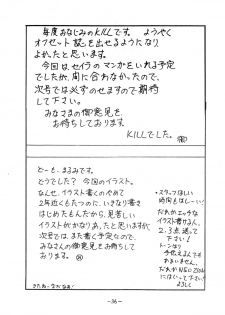 毎度おなじみのKILLです。ようやく
オフセット誌を出せるようになり
よかったと思います。
今回は、セイラのマンガをいれる予定
でしたが、間に合わなかったので、
次号では必ずのせますので期待
して下さい。
みなさまの御意見を
お待ちしております。
KILLでした。
どーも、まるみです。
どうでした？今回のイラスト。
なんせ、イラスト書くのやめて
2年近くもたつのに、いきなり書き
はじめたもんだから、見苦しい
イラストがかなりあったと思いますが、
次号では、また書く予定なので、
みなさんの御意見をお待ちして
おります。
スタッフほしい
時間もほしーい!
だれかエッチな
イラスト書ける人、
2、3点送って
下さい!
-36-